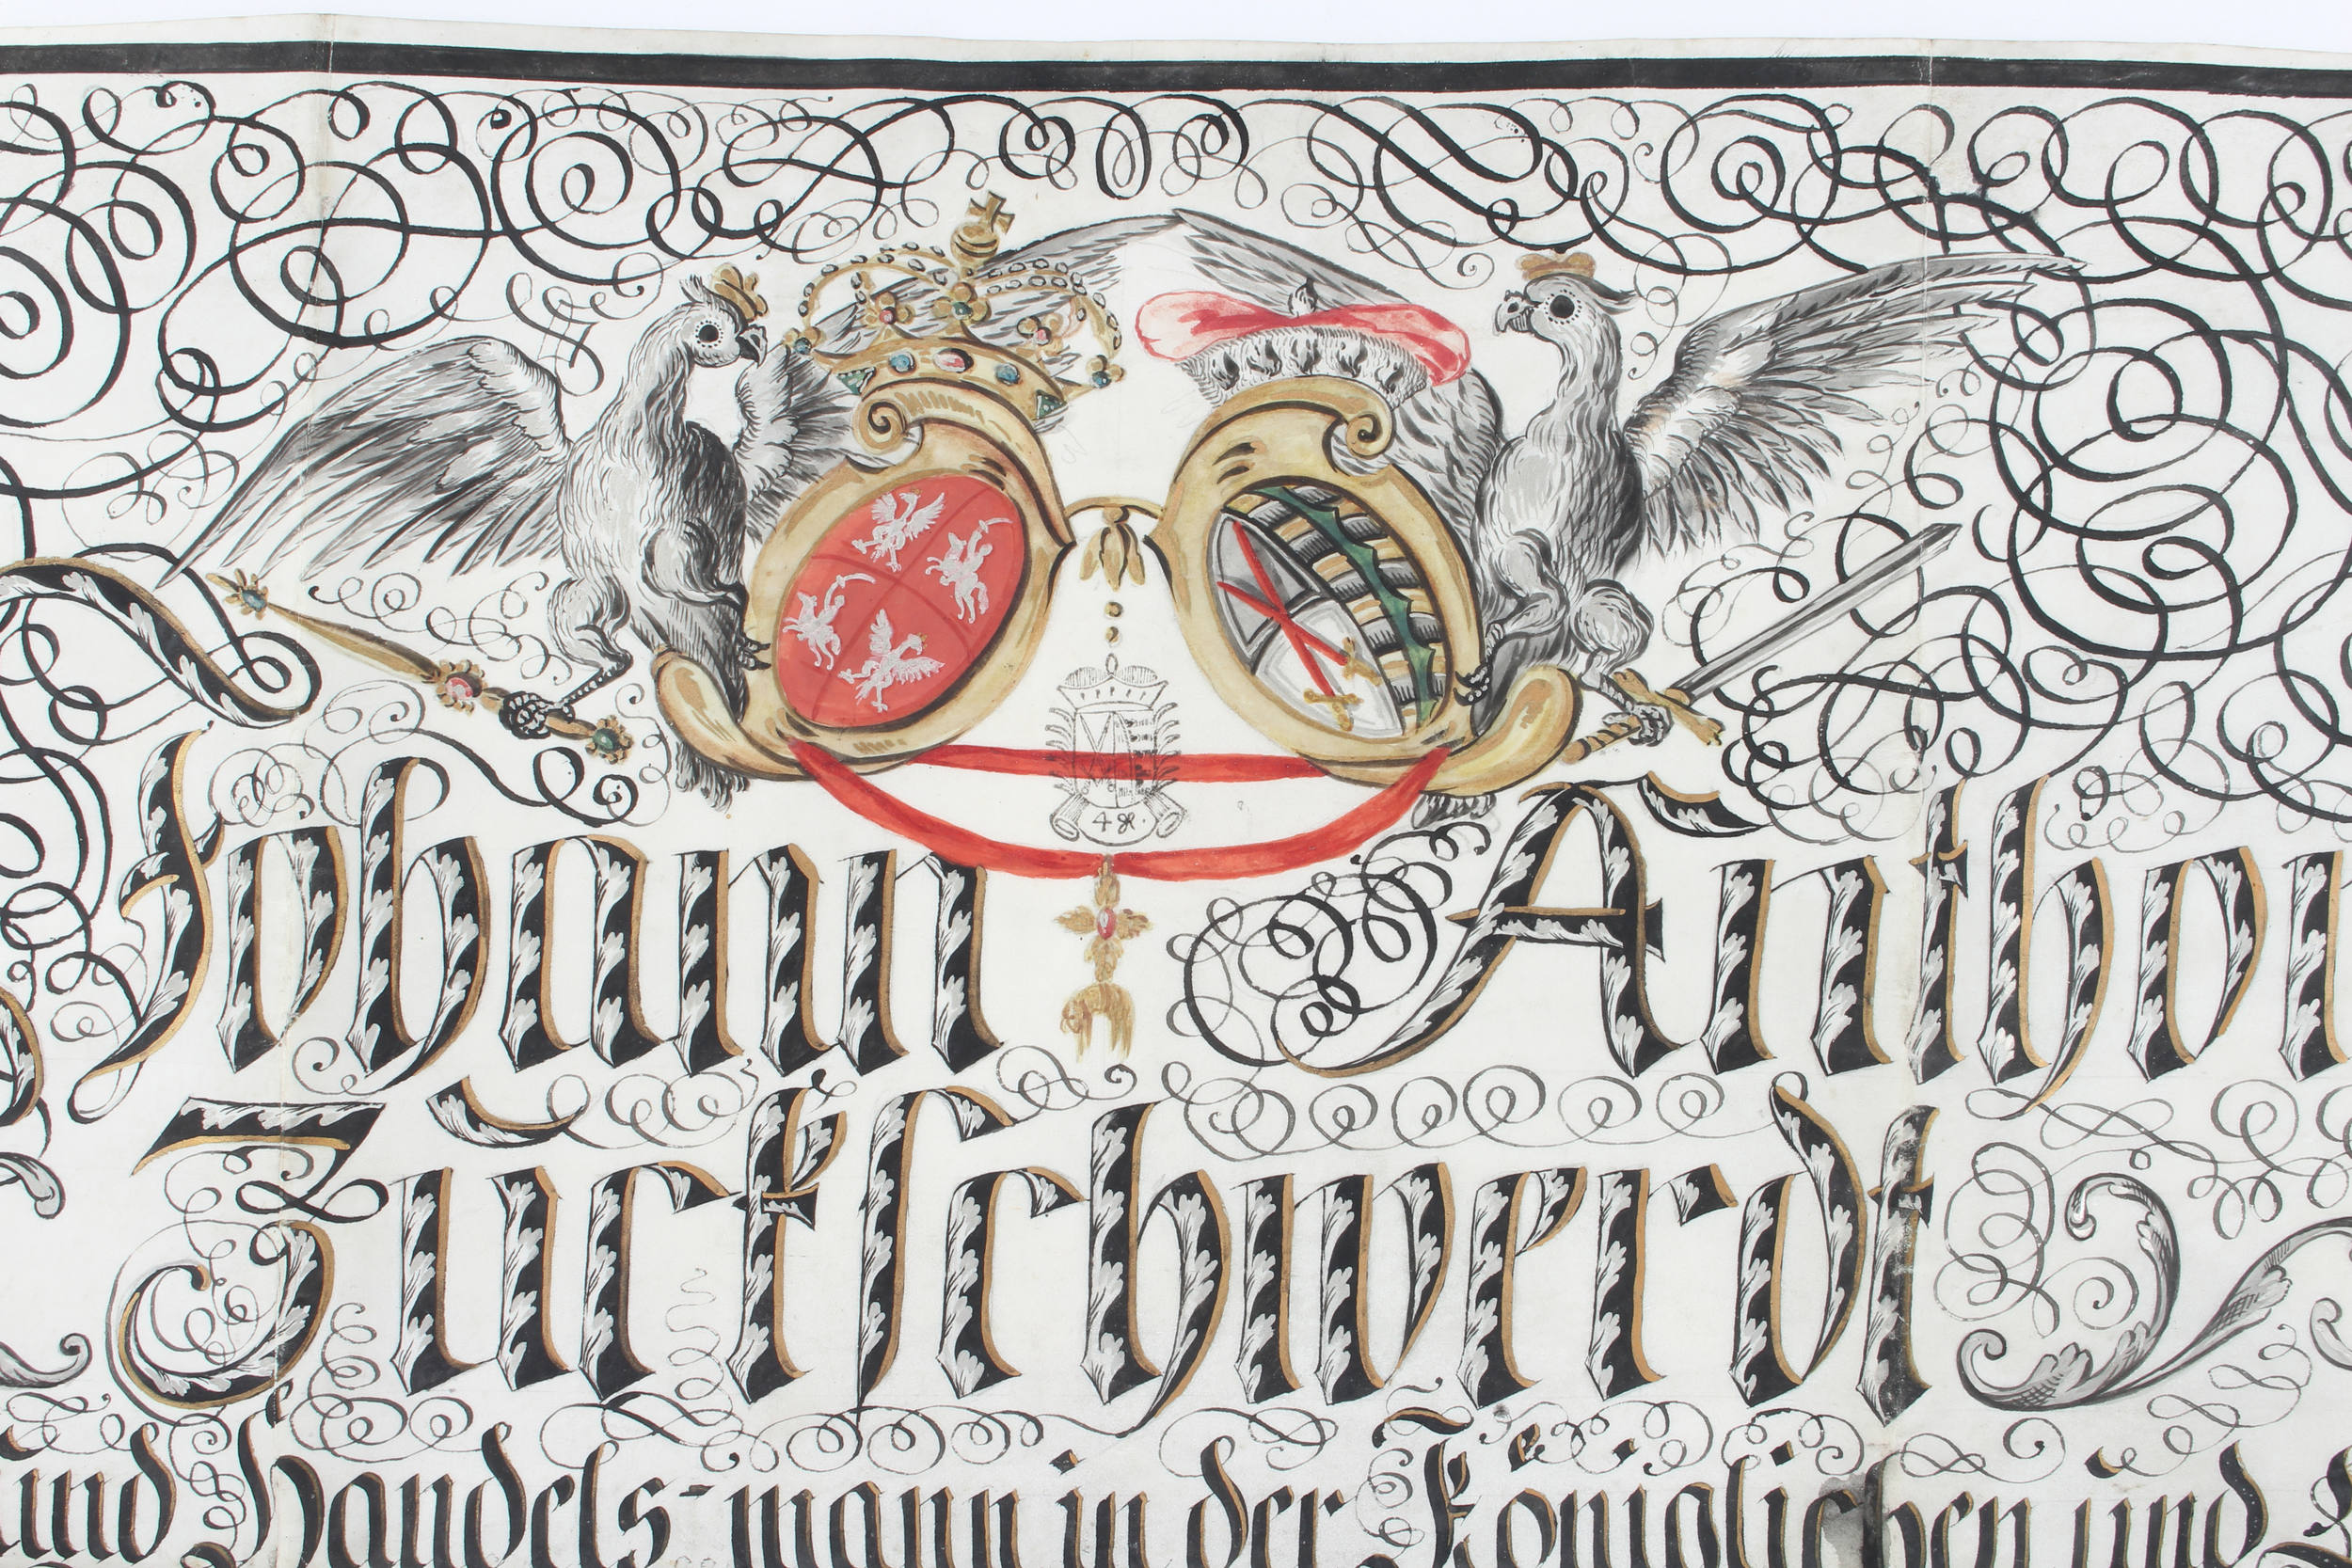 4 gl.
Johann Anthon
Zuckschwerdt
und Handels-mann in der Königlichen und